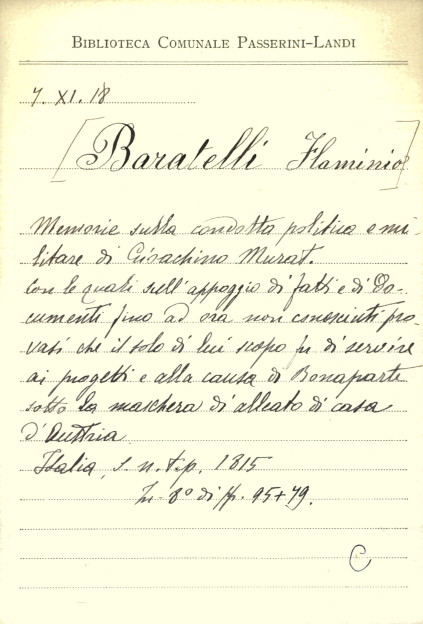 BIBLIOTECA COMUNALE PASSERINI-LANDI
7. XI. 18
[Baratelli Flaminio]
Memorie sulla condotta politica e mi-
litare di Gioachino Murat.
Con le quali sull'appoggio di fatti e di do-
cumenti fino ad ora non conosciuti pro-
vasi che il solo di lui scopo fu di servire
ai progetti e alla causa di Bonaparte
sotto la maschera di alleato di casa
d'Austria
Italia, s. n. tip. 1815
In-8° di pp. 95+79.
C